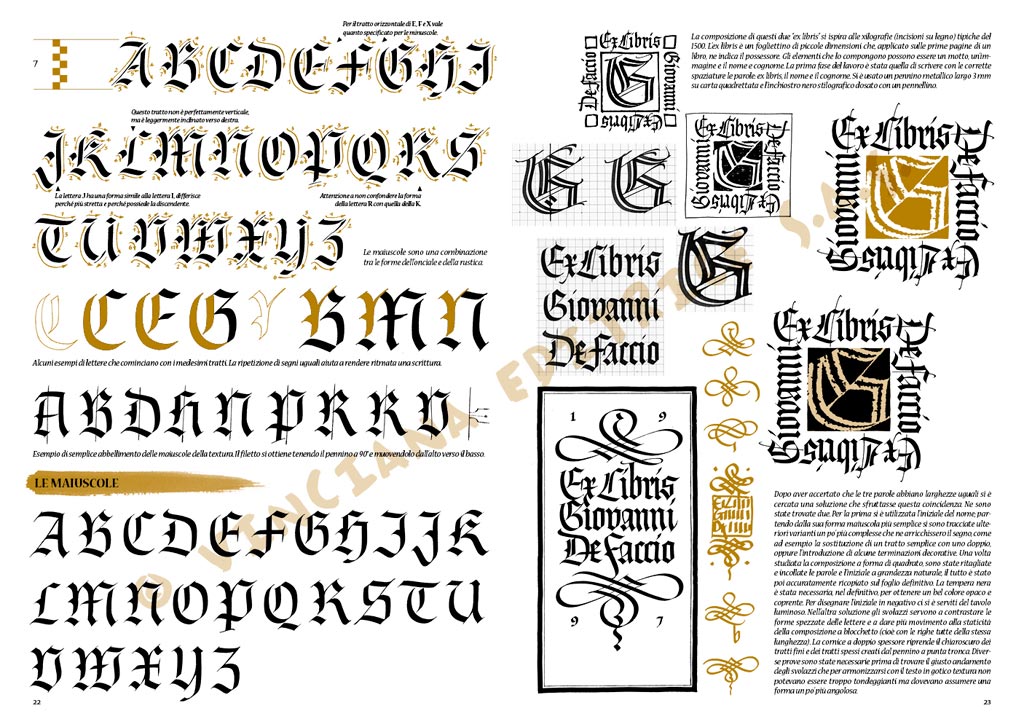 Per il tratto orizzontale di E, F e X vale
quanto specificato per le minuscole.
7
A B C D E F G H I
Questo tratto non è perfettamente verticale,
ma è leggermente inclinato verso destra.
J K L M N O P Q R S
La lettera J ha una forma simile alla lettera I, differisce
perché più stretta e perché possiede la discendente.
Attenzione a non confondere la forma
della lettera R con quella della K.
T U V W X Y Z
Le maiuscole sono una combinazione
tra le forme dell'onciale e della rustica.
C E G B M N
Alcuni esempi di lettere che cominciano con i medesimi tratti. La ripetizione di segni uguali aiuta a rendere ritmata una scrittura.
A B D H N P R R V
Esempio di semplice abbellimento delle maiuscole della textura. Il filetto si ottiene tenendo il pennino a 90° e muovendolo dall'alto verso il basso.
LE MAIUSCOLE
A B C D E F G H I J K
L M N O P Q R S T U
V W X Y Z
22
La composizione di questi due 'ex libris' si ispira alle xilografie (incisioni su legno) tipiche del
1500. L'ex libris è un fogliettino di piccole dimensioni che, applicato sulle prime pagine di un
libro, ne indica il possessore. Gli elementi che lo compongono possono essere un motto, un'im-
magine e il nome e cognome. La prima fase del lavoro è stata quella di scrivere con le corrette
spaziature le parole: ex libris, il nome e il cognome. Si è usato un pennino metallico largo 3 mm
su carta quadrettata e l'inchiostro nero stilografico dosato con un pennellino.
Ex Libris
Giovanni
De Faccio
Ex Libris
G
G G
Ex Libris
Giovanni
G
Ex Libris
De Faccio
Giovanni
Ex Libris
Ex Libris
Giovanni
De Faccio
G
Ex Libris
De Faccio
Giovanni
Ex Libris
1 9
Ex Libris
Giovanni
De Faccio
9 7
Dopo aver accertato che le tre parole abbiano larghezze uguali si è
cercata una soluzione che sfruttasse questa coincidenza. Ne sono
state trovate due. Per la prima si è utilizzata l'iniziale del nome: par-
tendo dalla sua forma maiuscola più semplice si sono tracciate ulte-
riori varianti un po' più complesse che ne arricchissero il segno, come
ad esempio la sostituzione di un tratto semplice con uno doppio,
oppure l'introduzione di alcune terminazioni decorative. Una volta
studiata la composizione a forma di quadrato, sono state ritagliate
e incollate le parole e l'iniziale a grandezza naturale, il tutto è stato
poi accuratamente ricopiato sul foglio definitivo. La tempera nera
è stata necessaria, nel definitivo, per ottenere un bel colore opaco e
coprente. Per disegnare l'iniziale in negativo ci si è serviti del tavolo
luminoso. Nell'altra soluzione gli svolazzi servono a contrastare le
forme spezzate delle lettere e a dare più movimento alla staticità
della composizione a blocchetto (cioè con le righe tutte della stessa
lunghezza). La cornice a doppio spessore riprende il chiaroscuro dei
tratti fini e dei tratti spessi creati dal pennino a punta tronca. Diver-
se prove sono state necessarie prima di trovare il giusto andamento
degli svolazzi che per armonizzarsi con il testo in gotico textura non
potevano essere troppo tondeggianti ma dovevano assumere una
forma un po' più angolosa.
23
© VINCIANA EDITRICE S.A.